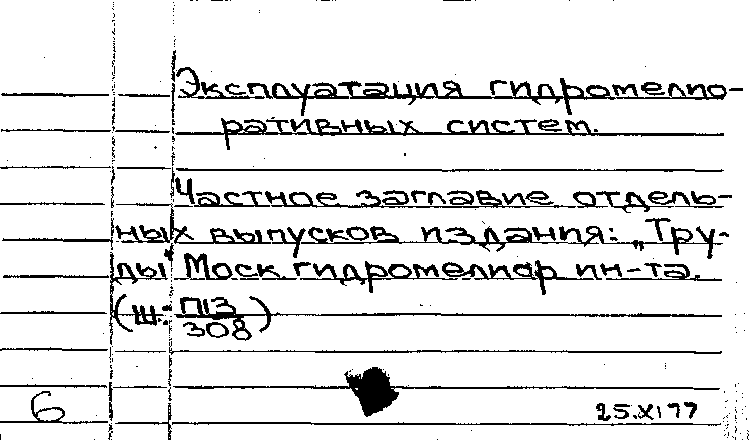 Эксплуатация гидромелио-
ративных систем.
Частное заглавие отдель-
ных выпусков издания: „Тру-
ды" Моск. гидромелиор ин-та.
(Ш: П13/308)
6
25.XI 77